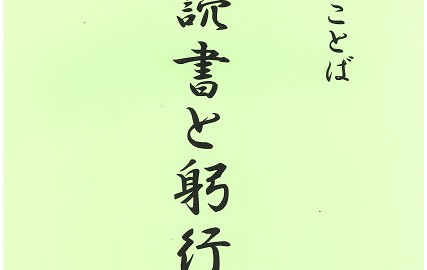 ことば
読書と躬行